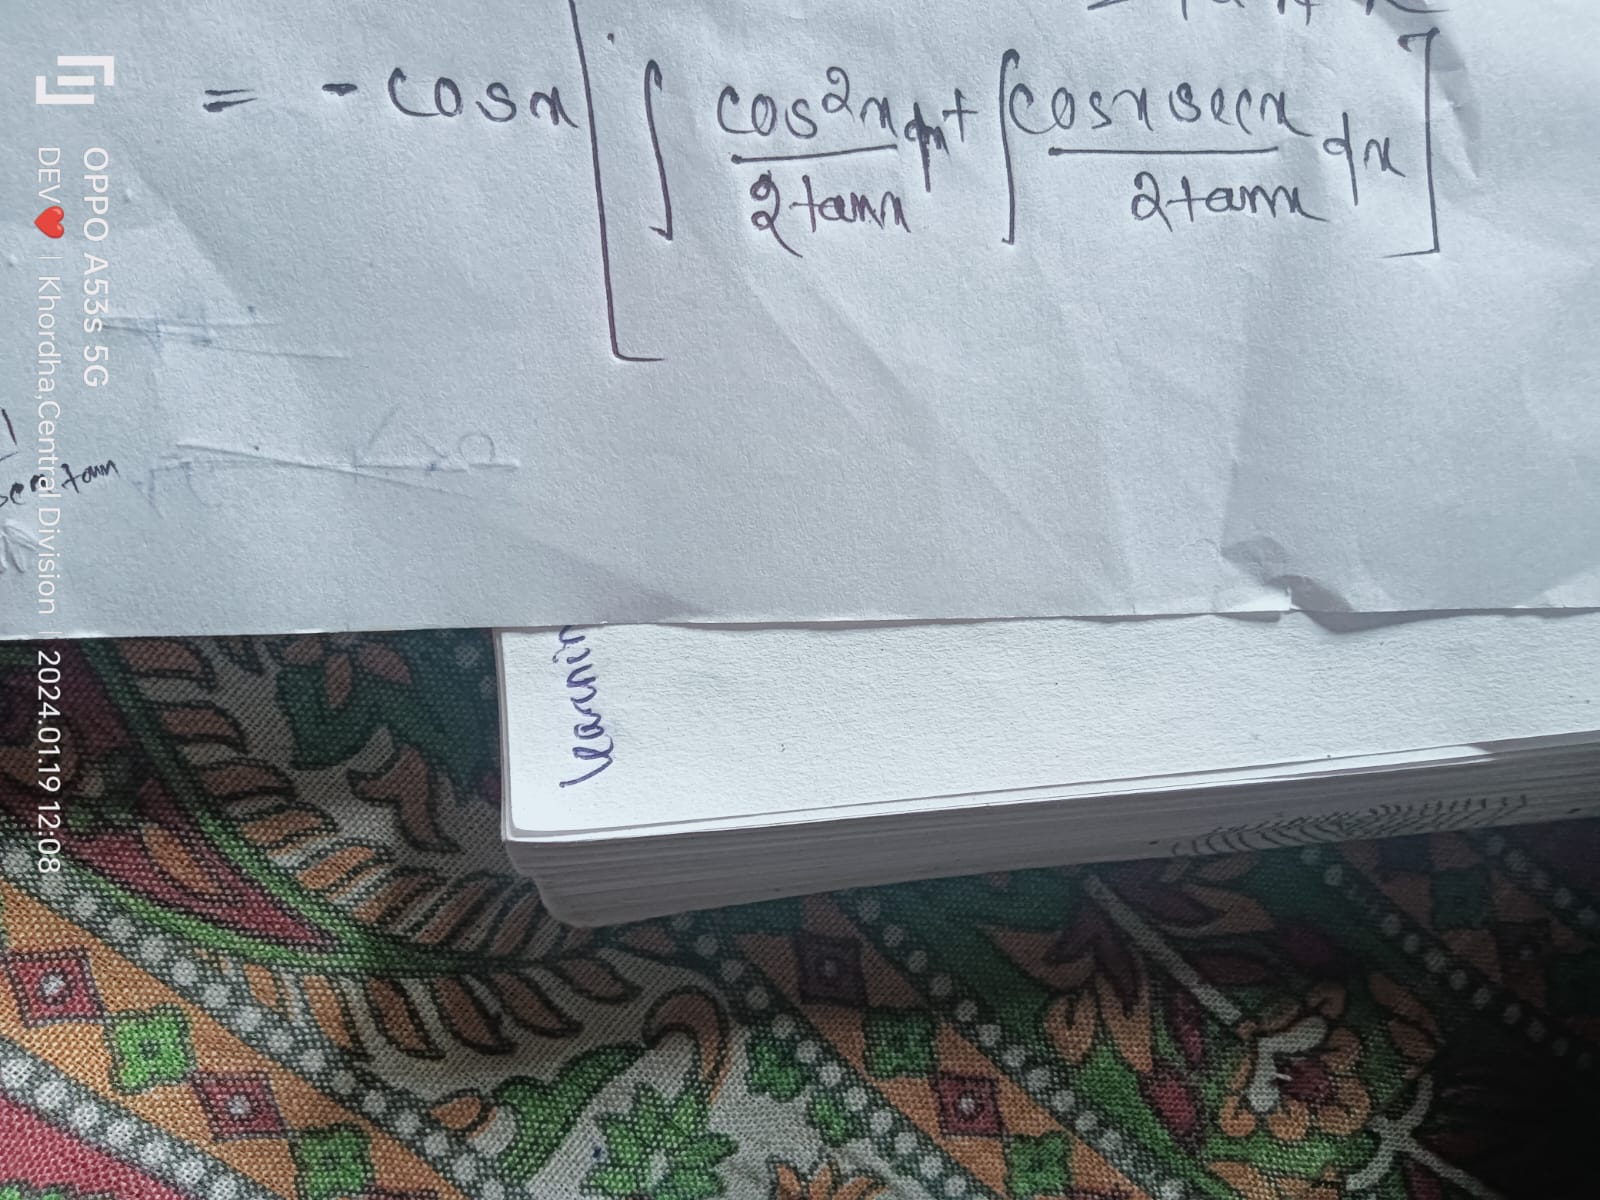 = - cosx [ ∫ cos²x/2tanx dx + ∫ cosx secx/2tanx dx ]
tan
learnin
OPPO A53s 5G
DEV❤️ | Khordha,Central Division | 2024.01.19 12:08